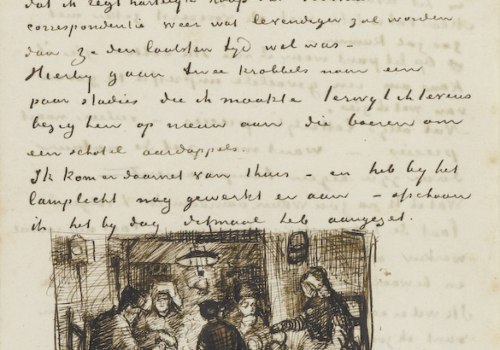 dat ik regt hartelyk hoop dat
correspondentie weer wat levendiger zal worden
dan ze den laatsten tyd wel was –
Hierby gaan twee krabbels naar een
paar studies die ik maakte terwyl ik tevens
bezig ben op nieuw aan die boeren om
een schotel aardappels.
Ik kom er daarnet van thuis – en heb by het
lamplicht nog gewerkt er aan – ofschoon
ik het by dag ditmaal heb aangezet.